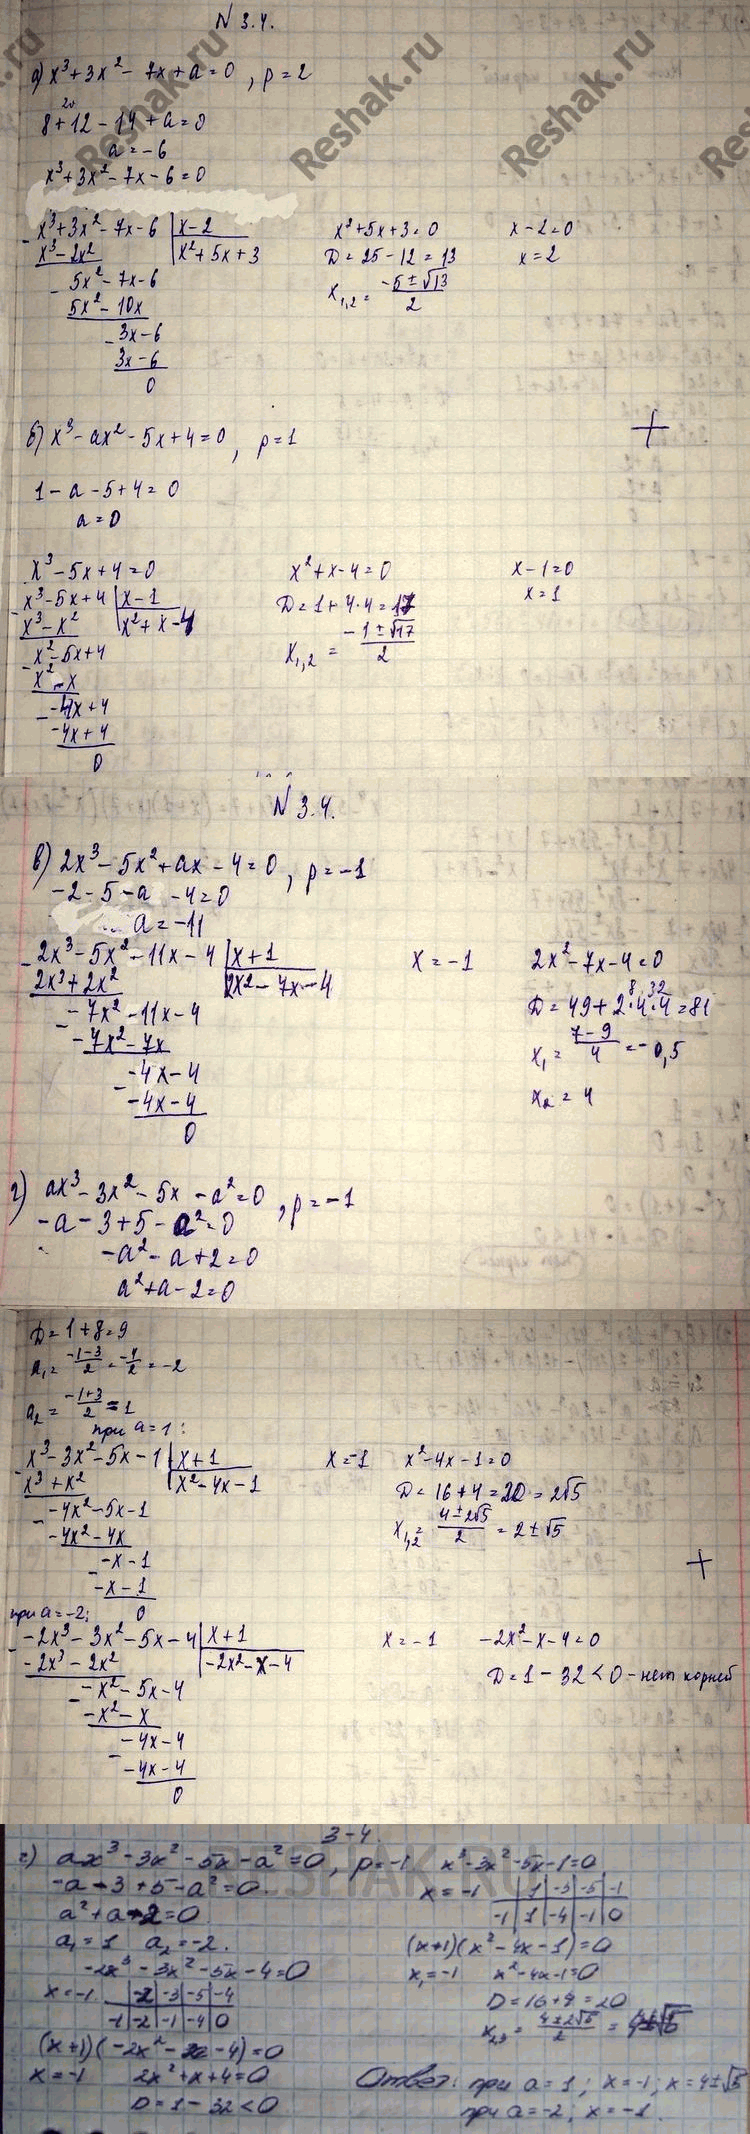 N 3.4.
а) x³ + 3x² - 7x + a = 0, p = 2
20
8 + 12 - 14 + a = 0
a = -6
x³ + 3x² - 7x - 6 = 0
x³ + 3x² - 7x - 6 | x - 2
x³ - 2x² | x² + 5x + 3
5x² - 7x - 6
5x² - 10x
3x - 6
3x - 6
0
x² + 5x + 3 = 0
D = 25 - 12 = 13
x₁,₂ = (-5 ± √13)/2
x - 2 = 0
x = 2
б) x³ - ax² - 5x + 4 = 0, p = 1
+
1 - a - 5 + 4 = 0
a = 0
x³ - 5x + 4 = 0
x³ - 5x + 4 | x - 1
x³ - x² | x² + x - 4
x² - 5x + 4
x² - x
-4x + 4
-4x + 4
0
x² + x - 4 = 0
D = 1 + 4·4 = 17
x₁,₂ = (-1 ± √17)/2
x - 1 = 0
x = 1
N 3.4.
в) 2x³ - 5x² + ax - 4 = 0, p = -1
-2 - 5 - a - 4 = 0
a = -11
2x³ - 5x² - 11x - 4 | x + 1
2x³ + 2x² | 2x² - 7x - 4
-7x² - 11x - 4
-7x² - 7x
-4x - 4
-4x - 4
0
x = -1
2x² - 7x - 4 = 0
8 32
D = 49 + 2·4·4 = 81
x₁ = (7 - 9)/4 = -0,5
x₂ = 4
г) ax³ - 3x² - 5x - a² = 0, p = -1
-a - 3 + 5 - a² = 0
-a² - a + 2 = 0
a² + a - 2 = 0
D = 1 + 8 = 9
a₁ = (-1-3)/2 = -4/2 = -2
a₂ = (-1+3)/2 = 1
при a = 1:
x³ - 3x² - 5x - 1 | x + 1
x³ + x² | x² - 4x - 1
-4x² - 5x - 1
-4x² - 4x
-x - 1
-x - 1
0
x = -1
x² - 4x - 1 = 0
D = 16 + 4 = 20 = 2√5
x₁,₂ = (4 ± 2√5)/2 = 2 ± √5
+
при a = -2:
-2x³ - 3x² - 5x - 4 | x + 1
-2x³ - 2x² | -2x² - x - 4
-x² - 5x - 4
-x² - x
-4x - 4
-4x - 4
0
x = -1
-2x² - x - 4 = 0
D = 1 - 32 < 0 - нет корней
3-4.
г) ax³ - 3x² - 5x - a² = 0, p = -1
-a - 3 + 5 - a² = 0.
a² + a - 2 = 0
a₁ = 1 a₂ = -2.
-2x³ - 3x² - 5x - 4 = 0
x = -1 | -2 | -3 | -5 | -4
-1 | -2 | -1 | -4 | 0
(x+1)(-2x² - x - 4) = 0
x = -1 2x² + x + 4 = 0
D = 1 - 32 < 0
x³ - 3x² - 5x - 1 = 0
x = -1 | 1 | -3 | -5 | -1
-1 | 1 | -4 | -1 | 0
(x+1)(x² - 4x - 1) = 0
x₁ = -1 x² - 4x - 1 = 0
D = 16 + 4 = 20
x₂,₃ = (4 ± 2√5)/2 = 4 ± √5
Ответ: при a = 1; x = -1; x = 4 ± √5
при a = -2; x = -1.
Reshak.ru
Reshak.ru
Reshak.ru
RESHAK.RU